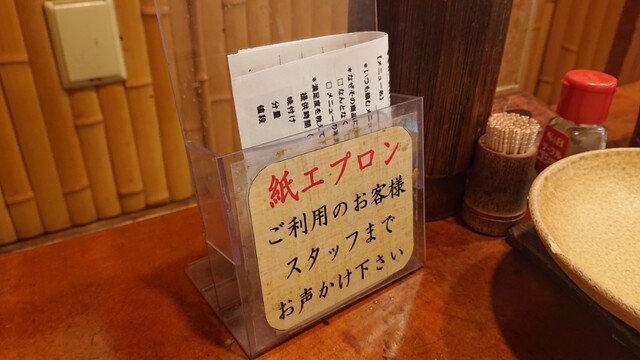 紙エプロン
ご利用のお客様
スタッフまで
お声かけ下さい
【メニュー名】
*いつも頼むメニ
*なぜその商品に
□なんとなく
□メニューの写
*満足度を教えて
提供時間
味付け
分量
値段
S&B